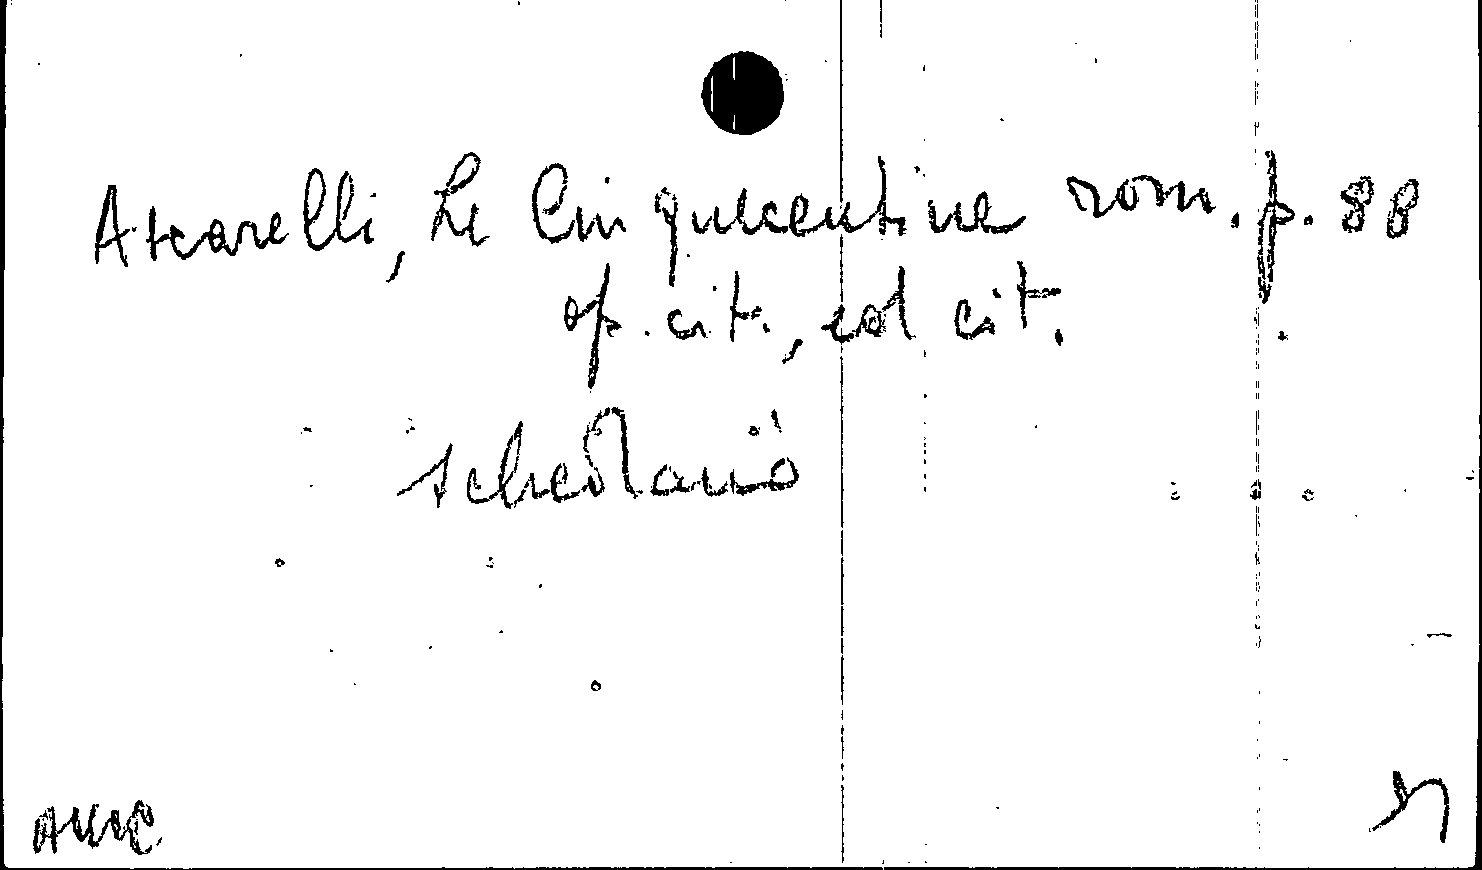 Ascarelli, Le Cinquecentine rom. p. 88
op. cit., ed cit.
schedario